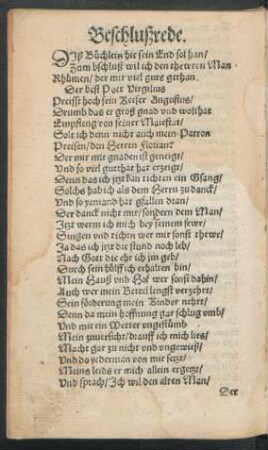 Beschlußrede.
Diß Büchlein hie sein End sol han/
Zum bschluß wil ich den thewren Man
Rhümen/ der mir viel guts gethan.
Der best Poet Virgilius
Preisst hoch sein Keiser Augustus/
Drumb das er groß gnad vnd wolthat
Empfieng von seiner Maiestat/
Solt ich denn nicht auch mein Patron
Preisen/ den Herren Florian?
Der mir mit gnaden ist geneigt/
Vnd so viel gutthat hat erzeigt/
Denn das ich jtzt kan tichten ein Gsang/
Solchs hab ich als dem Herrn zu danck/
Vnd so yemand hat gfallen dran/
Der danck nicht mir/ sondern dem Man/
Jtzt werm ich mich bey seinem fewr/
Singen vnd tichten wer mir sonst thewr/
Ja das ich jtzt die stund noch leb/
Nach Gott die ehr ich jm geb/
Durch sein hülff ich erhalten bin/
Mein Hauß vnd Hof wer sonst dahin/
Auch wer mein Bettel lengst verzehrt/
Sein förderung mein Kinder nehrt/
Denn da mein hoffnung gar schlug vmb/
Vnd mit ein Wetter vngestümb
Mein zuuersicht/ drauff ich mich lies/
Macht gar zu nicht vnd vngewieß/
Vnd do yederman von mir setzt/
Meins leids er mich allein ergetzt/
Vnd sprach/ Ich wil den alten Man/
Der